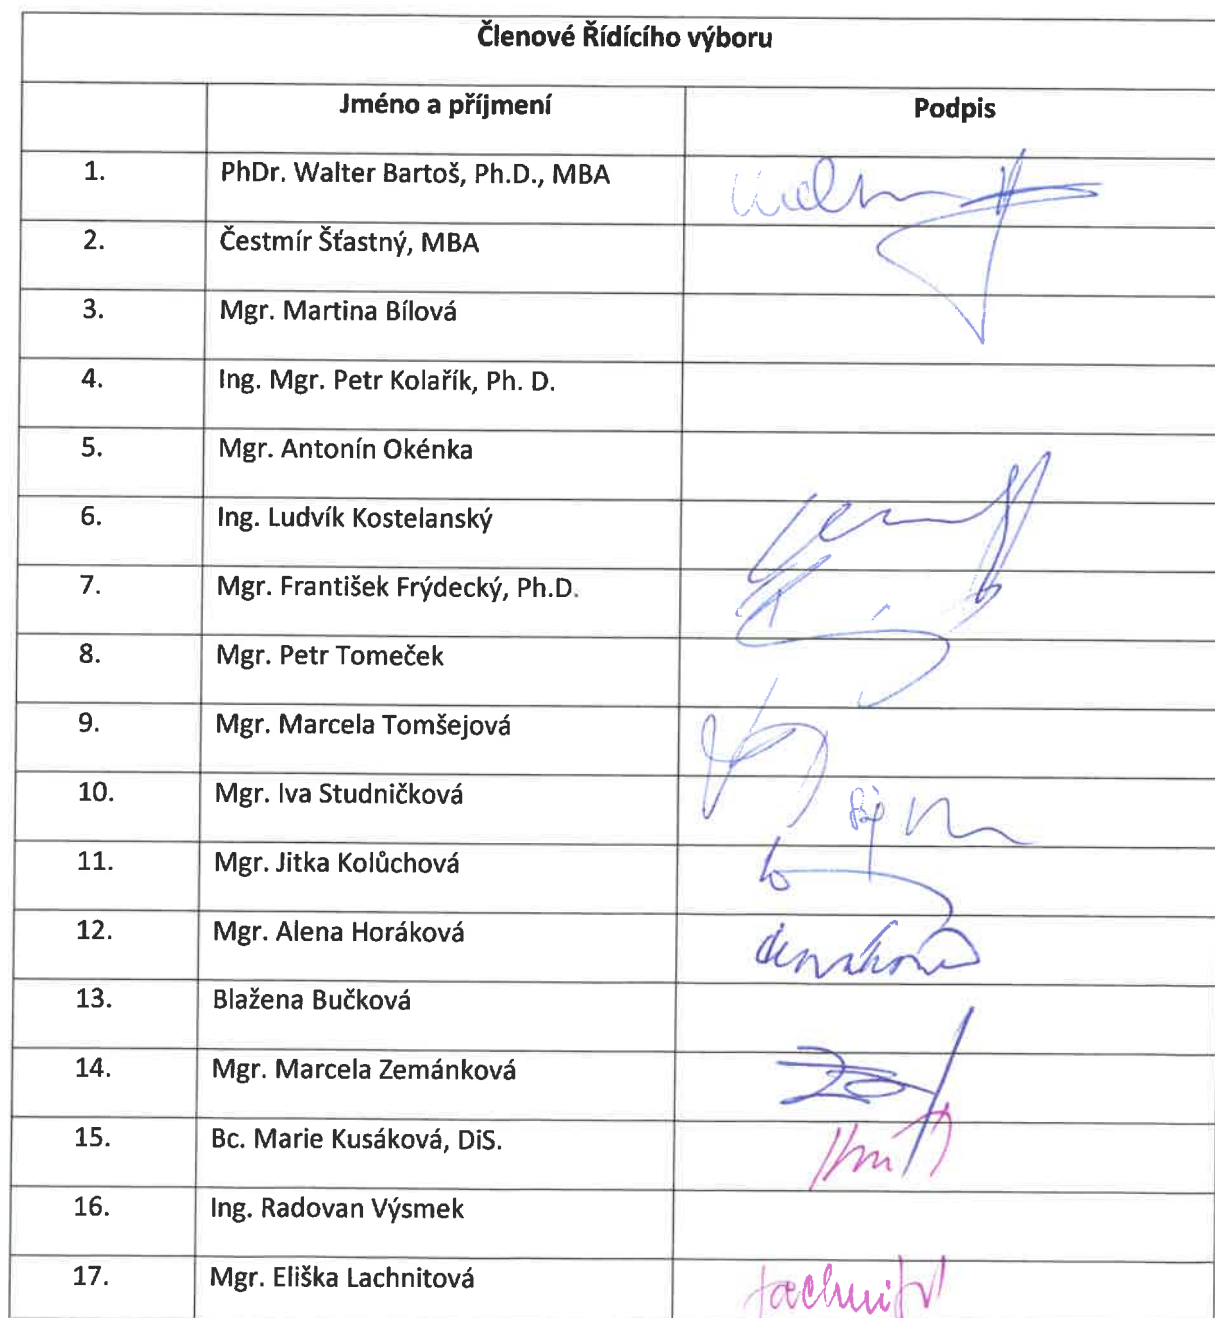 Členové Řídícího výboru
Jméno a příjmení Podpis
1. PhDr. Walter Bartoš, Ph.D., MBA
2. Čestmír Šťastný, MBA
3. Mgr. Martina Bílová
4. Ing. Mgr. Petr Kolařík, Ph. D.
5. Mgr. Antonín Okénka
6. Ing. Ludvík Kostelanský
7. Mgr. František Frýdecký, Ph.D.
8. Mgr. Petr Tomeček
9. Mgr. Marcela Tomšejová
10. Mgr. Iva Studničková
11. Mgr. Jitka Kolůchová
12. Mgr. Alena Horáková
13. Blažena Bučková
14. Mgr. Marcela Zemánková
15. Bc. Marie Kusáková, DiS.
16. Ing. Radovan Výsmek
17. Mgr. Eliška Lachnitová